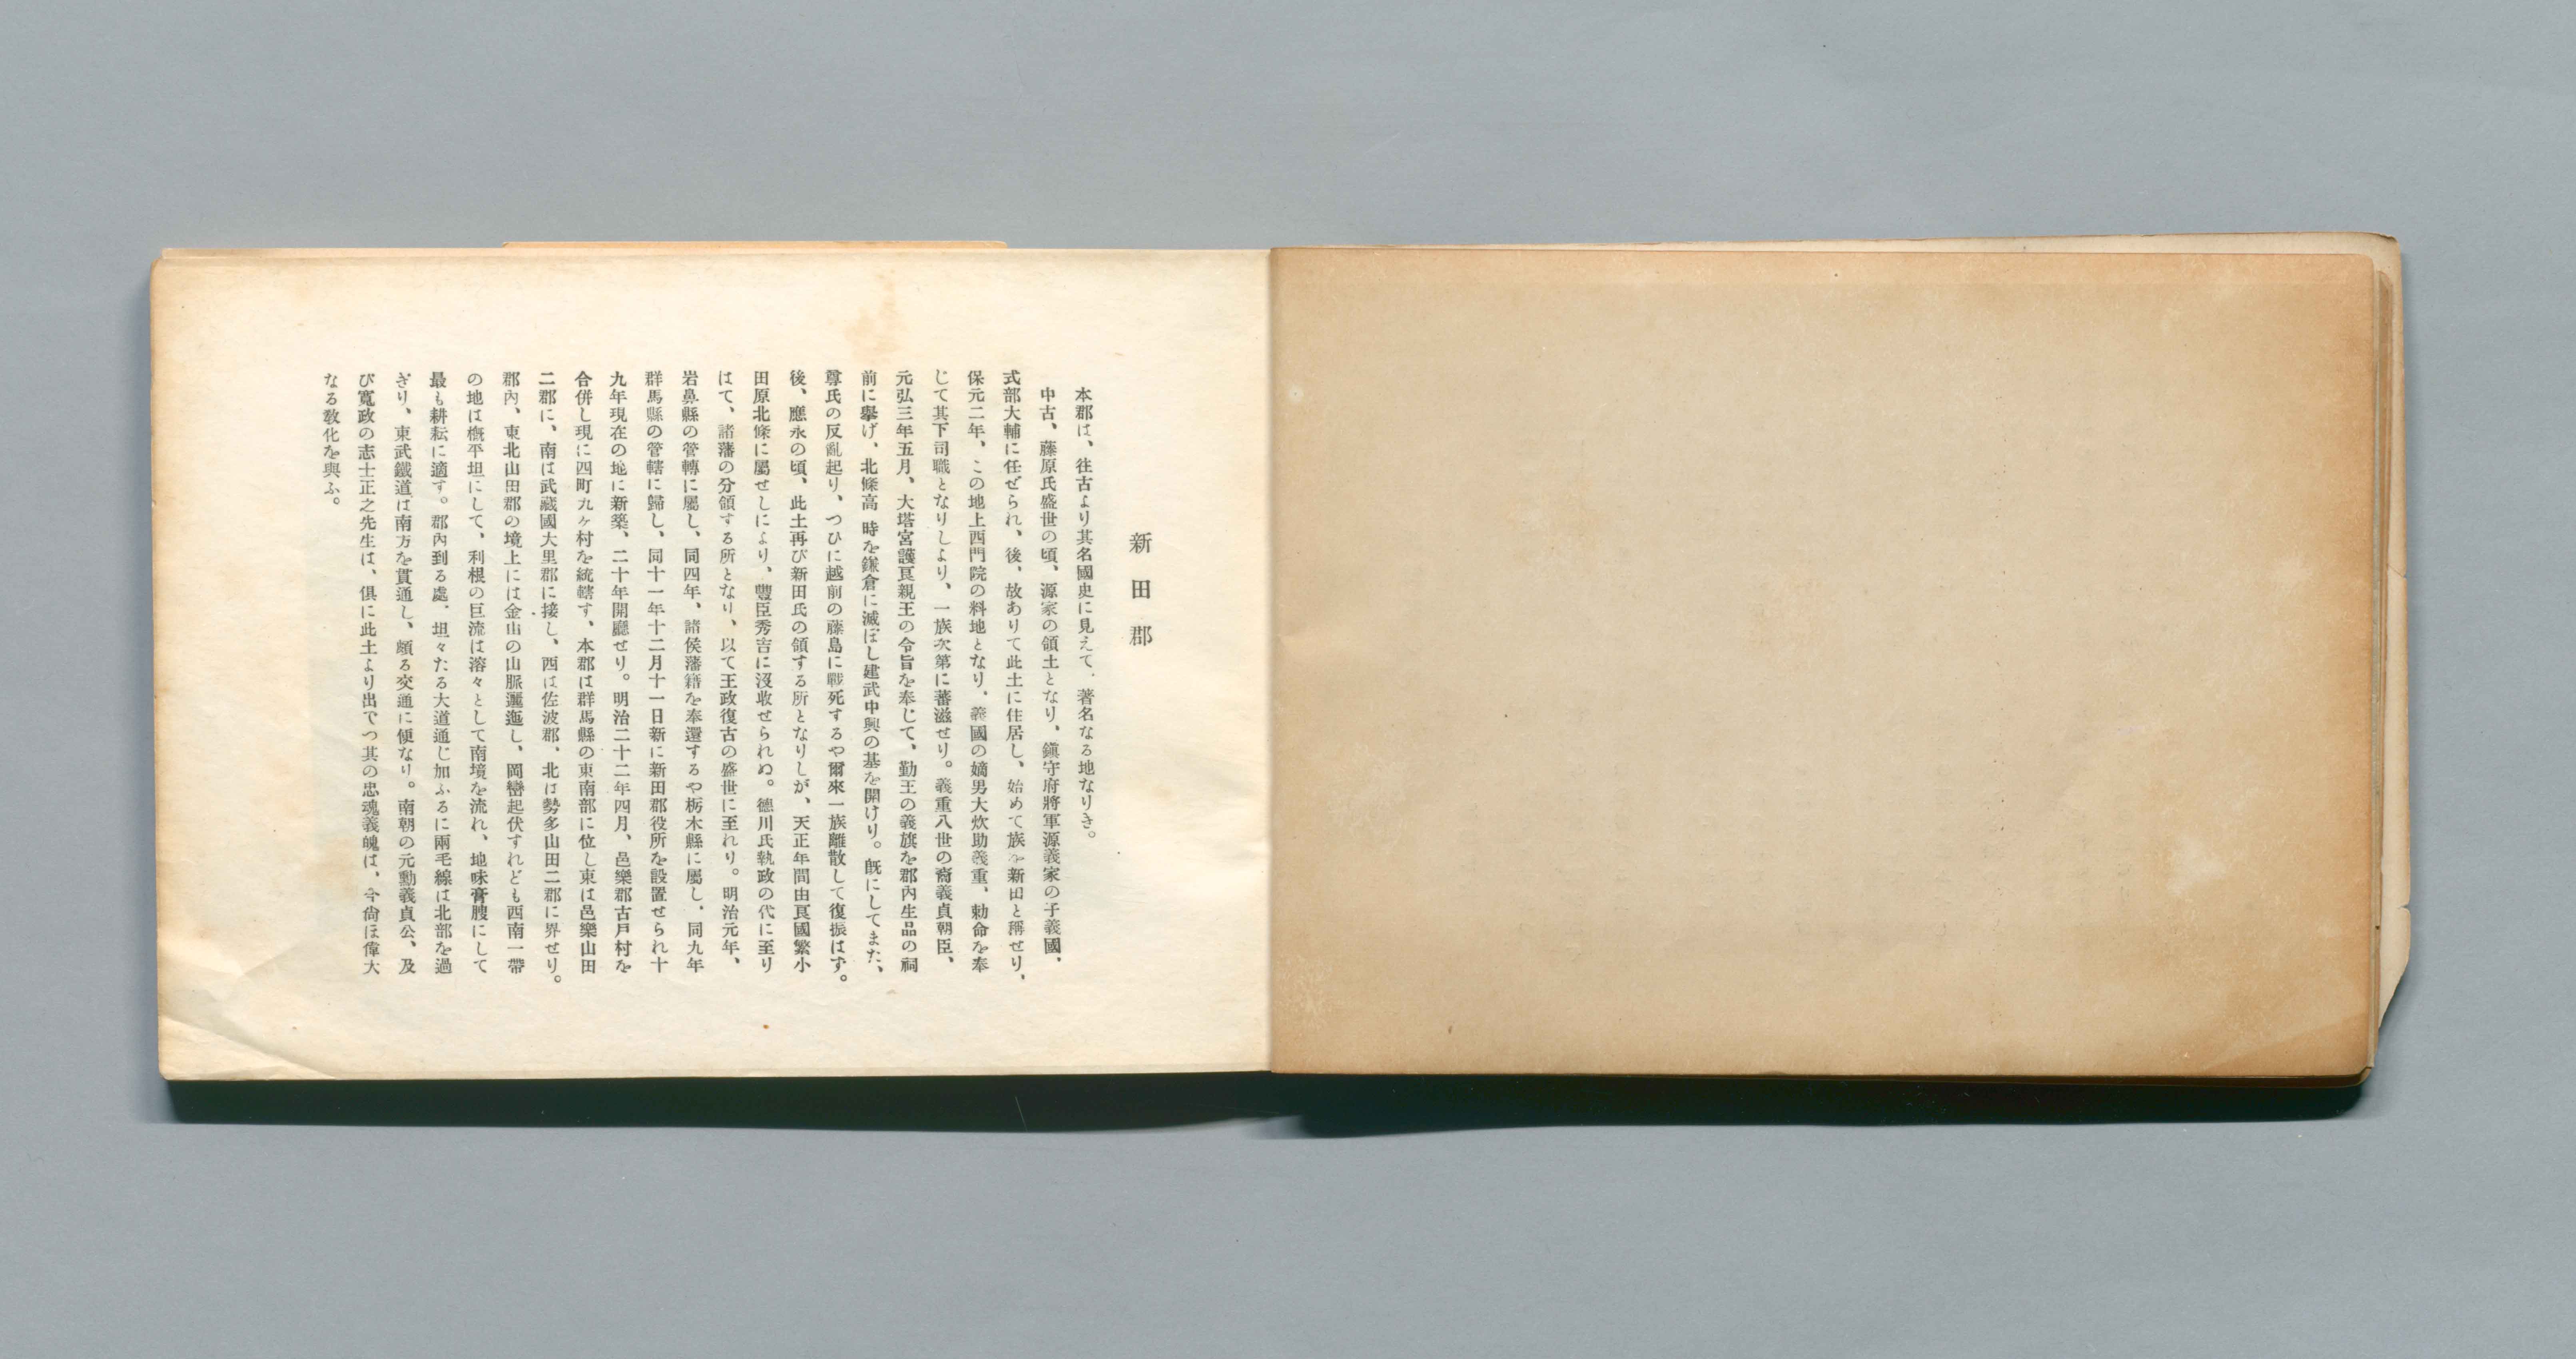 新田郡
本郡は、往古より其名國史に見えて、著名なる地なりき。
中古、藤原氏盛世の頃、源家の領土となり、鎭守府將軍源義家の子義國、
式部大輔に任ぜられ、後、故ありて此土に住居し、始めて族を新田と稱せり、
保元二年、この地上西門院の料地となり、義國の嫡男大炊助義重、勅命を奉
じて其下司職となりしより、一族次第に蕃滋せり。義重八世の裔義貞朝臣、
元弘三年五月、大塔宮護良親王の令旨を奉じて、勤王の義旗を郡內生品の祠
前に擧げ、北條高時を鎌倉に滅ぼし建武中興の基を開けり。旣にしてまた、
尊氏の反亂起り、つひに越前の藤島に戰死するや爾來一族離散して復振はず。
後、應永の頃、此土再び新田氏の領する所となりしが、天正年間由良國繁小
田原北條に屬せしにより、豐臣秀吉に沒收せられぬ。德川氏執政の代に至り
はて、諸藩の分領する所となり、以て王政復古の盛世に至れり。明治元年、
岩鼻縣の管轉に屬し、同四年、諸侯藩籍を奉還するや栃木縣に屬し、同九年
群馬縣の管轄に歸し、同十一年十二月十一日新に新田郡役所を設置せられ十
九年現在の地に新築、二十年開廳せり。明治二十二年四月、邑樂郡古戸村を
合併し現に四町九ヶ村を統轄す、本郡は群馬縣の東南部に位し東は邑樂山田
二郡に、南は武藏國大里郡に接し、西は佐波郡、北は勢多山田二郡に界せり。
郡內、東北山田郡の境上には金山の山脈邐迤し、岡巒起伏すれども西南一帶
の地は概平坦にして、利根の巨流は溶々として南境を流れ、地味膏腴にして
最も耕耘に適す。郡內到る處、坦々たる大道通じ加ふるに兩毛線は北部を過
ぎり、東武鐵道は南方を貫通し、頗る交通に便なり。南朝の元勳義貞公、及
び寬政の志士正之先生は、俱に此土より出でつ其の忠魂義魄は、今尙ほ偉大
なる敎化を與ふ。